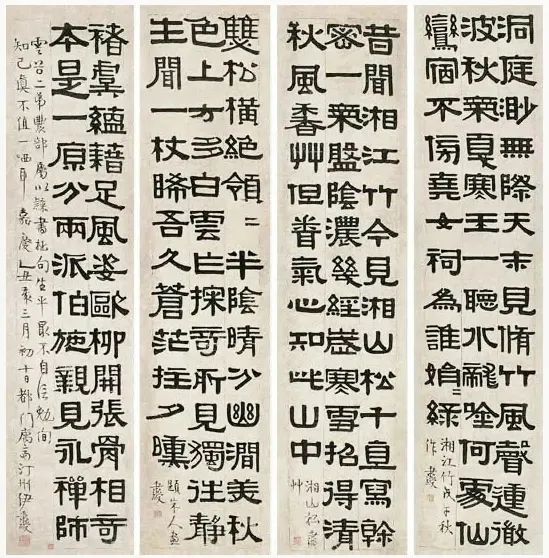 洞庭渺無際天末見脩竹風聲連徹
波秋氣夏寒玉一聽水龍唫何處仙
鸞宿不傍堯女祠為誰娟綠
湘江竹戊午秋
作
昔聞湘江竹今見湘山松千直寫幹
密一氣盤陰濃幾經嚴寒雪招得清
秋風香艸但眷氣心知此山中
湘山松
雙松橫絕領〻半陰晴分幽澗美秋
色上方多白雲亡探奇所見獨往靜
生聞一杖睎吾久蒼茫拄夕曛
題宋人畫
褚虞蘊藉足風姿歐柳開張骨相奇
本是一原分兩派伯施親見永禪師
雲谷二弟農部屬以隸書拙句生平最不自信勉徇
知己真不值一哂耳 嘉慶乙丑歲三月初十日都門寓齋汀州伊秉綬